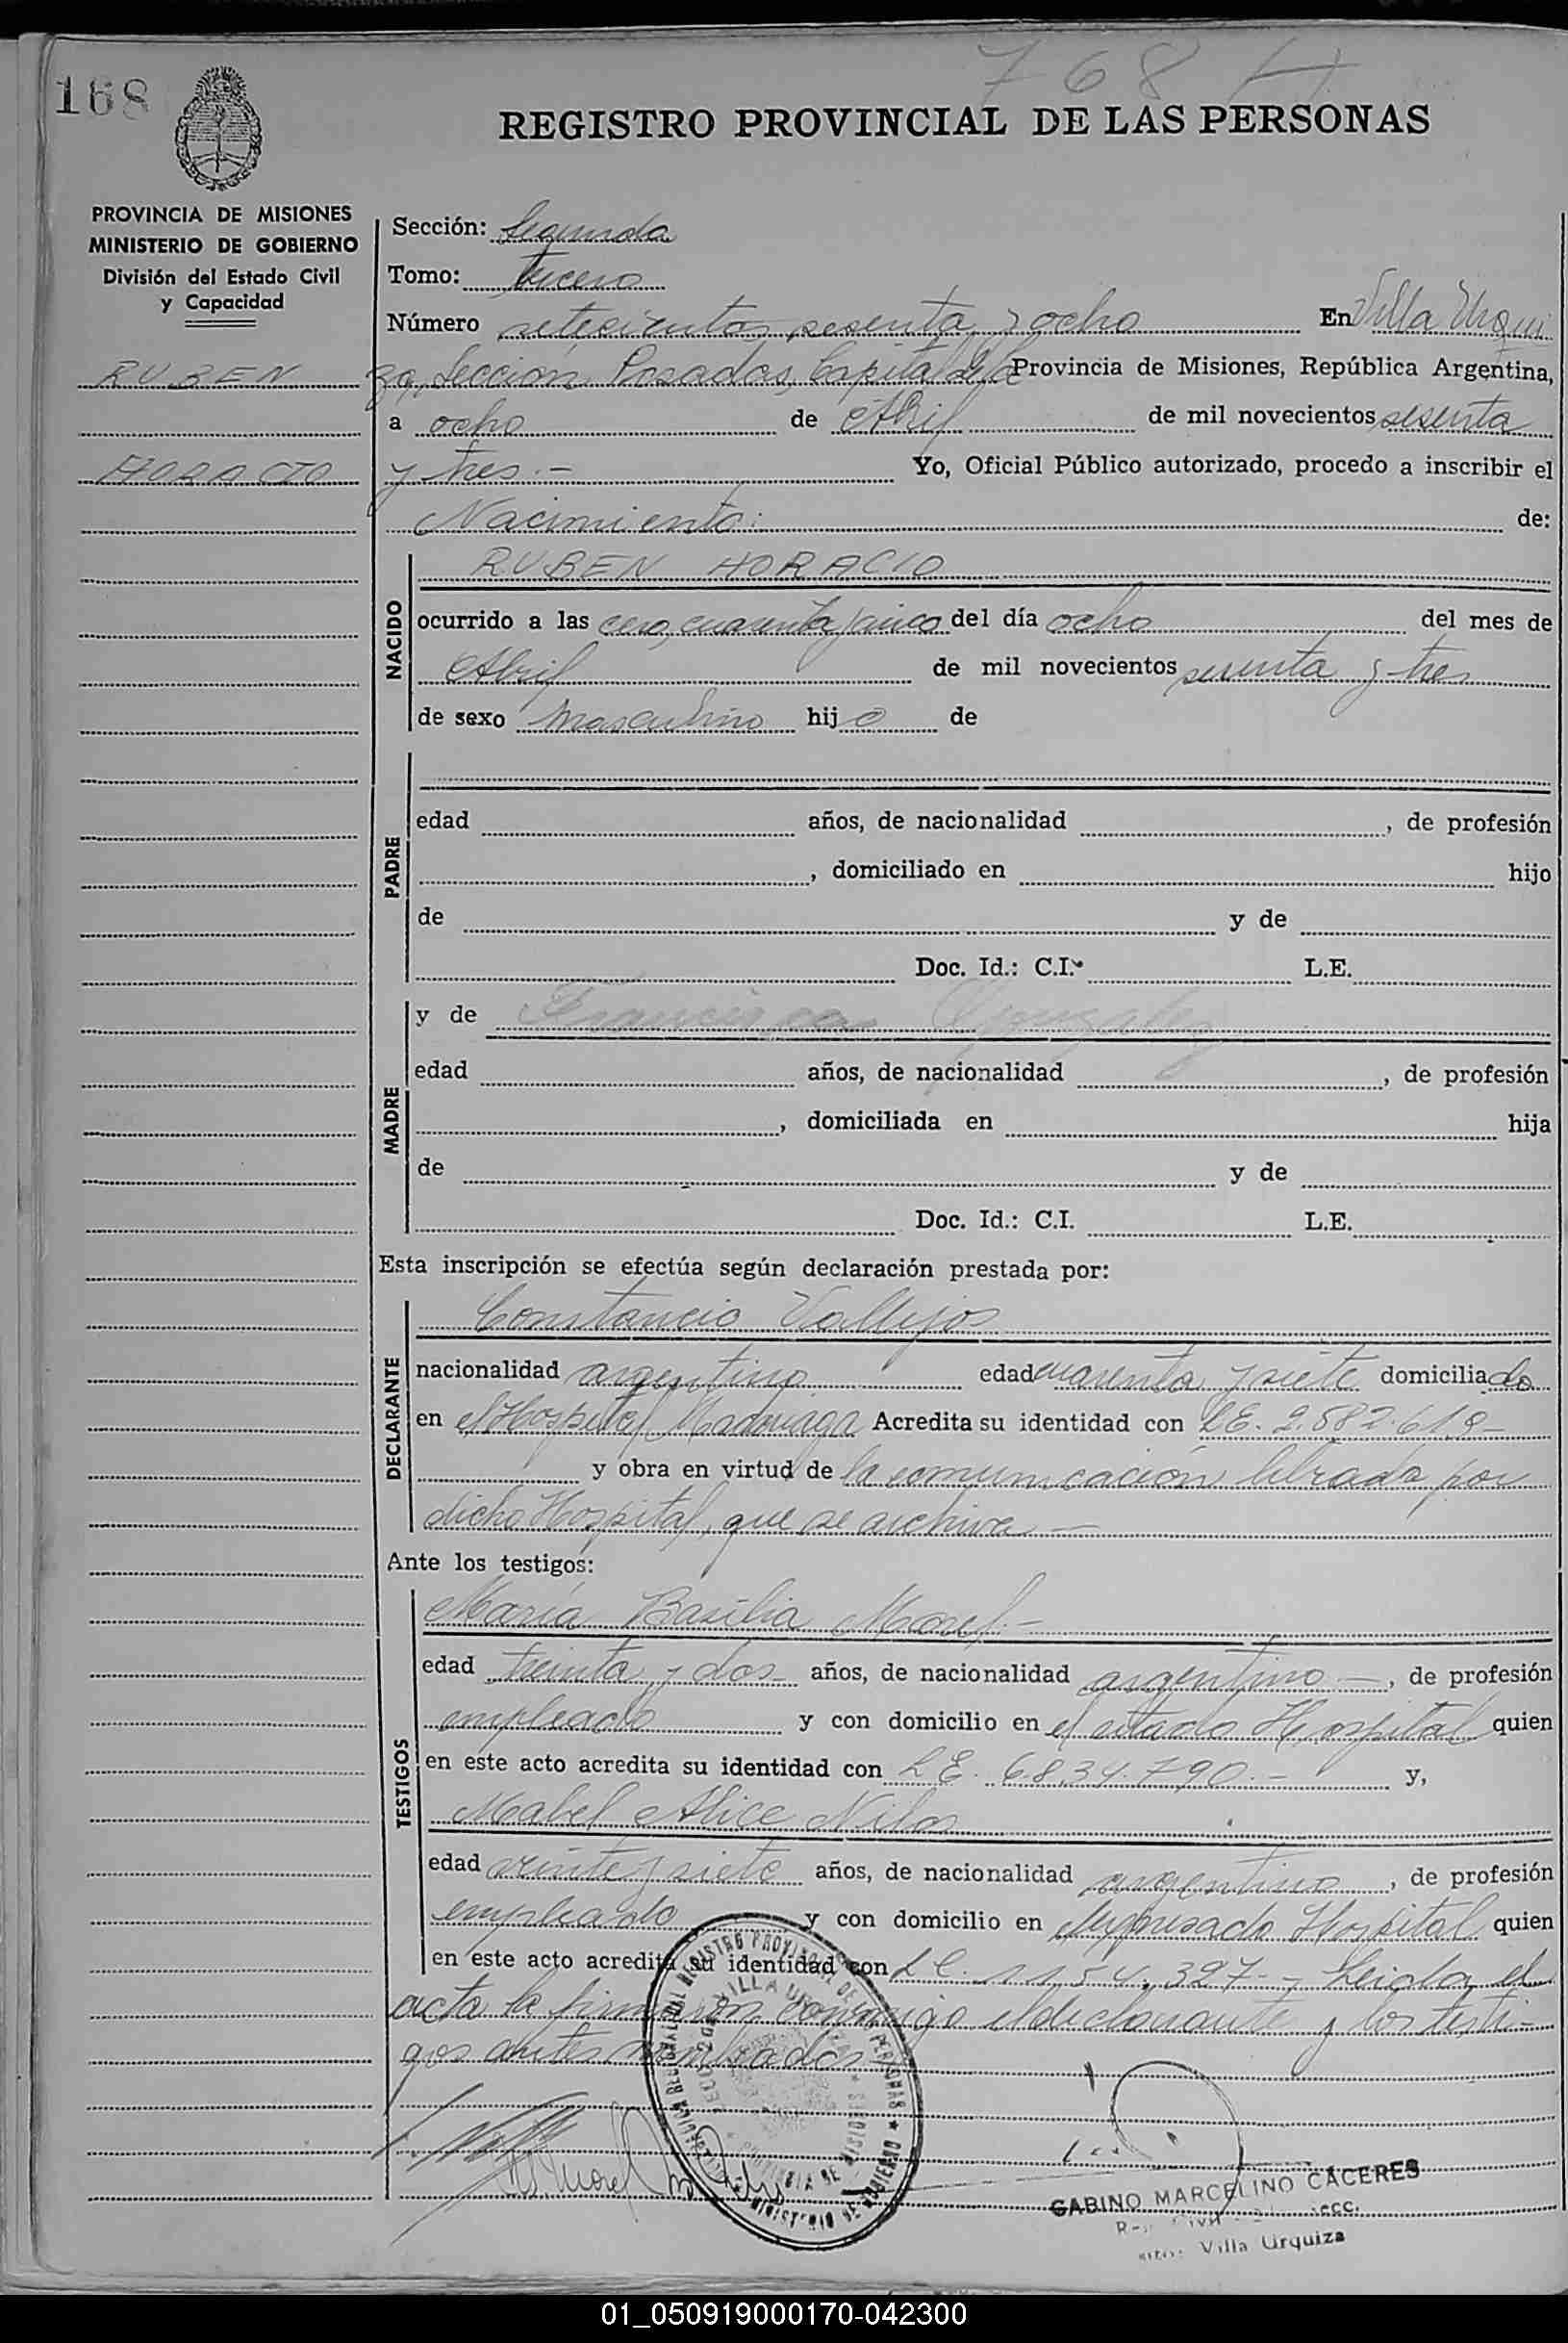 768
168
REGISTRO PROVINCIAL DE LAS PERSONAS
PROVINCIA DE MISIONES
MINISTERIO DE GOBIERNO
División del Estado Civil
y Capacidad
RUBEN
HORACIO
Sección: Segunda
Tomo: tercero
Número setecientos sesenta y ocho En Villa Urqui
za, Sección Posadas, Capital de la Provincia de Misiones, República Argentina,
a ocho de Abril de mil novecientos sesenta
y tres.- Yo, Oficial Público autorizado, procedo a inscribir el
Nacimiento: de:
NACIDO
RUBEN HORACIO
ocurrido a las cero, cuarenta y cinco del día ocho del mes de
Abril de mil novecientos sesenta y tres
de sexo masculino hijo de
PADRE
edad años, de nacionalidad , de profesión
, domiciliado en hijo
de y de
Doc. Id.: C.I. L.E.
MADRE
y de Francisca Gonzalez
edad años, de nacionalidad , de profesión
, domiciliada en hija
de y de
Doc. Id.: C.I. L.E.
Esta inscripción se efectúa según declaración prestada por:
DECLARANTE
Constancio Vallejos
nacionalidad argentino edad cuarenta y siete domiciliado
en el Hospital Madariaga Acredita su identidad con LE. 2.582.619-
y obra en virtud de la comunicación librada por
dicho Hospital, que se archiva -
Ante los testigos:
TESTIGOS
María Basilia Morel.-
edad treinta y dos- años, de nacionalidad argentino -, de profesión
empleado y con domicilio en el citado Hospital quien
en este acto acredita su identidad con LE. 6.834.790.- y,
Mabel Alice
edad veinte y siete años, de nacionalidad argentino , de profesión
empleado y con domicilio en el expresado Hospital quien
en este acto acredita su identidad con LC. 1154.327- Leida el
acta la firmaron conmigo el declarante y los testi-
gos antes nombrados
GABINO MARCELINO CACERES
Villa Urquiza
01_050919000170-042300